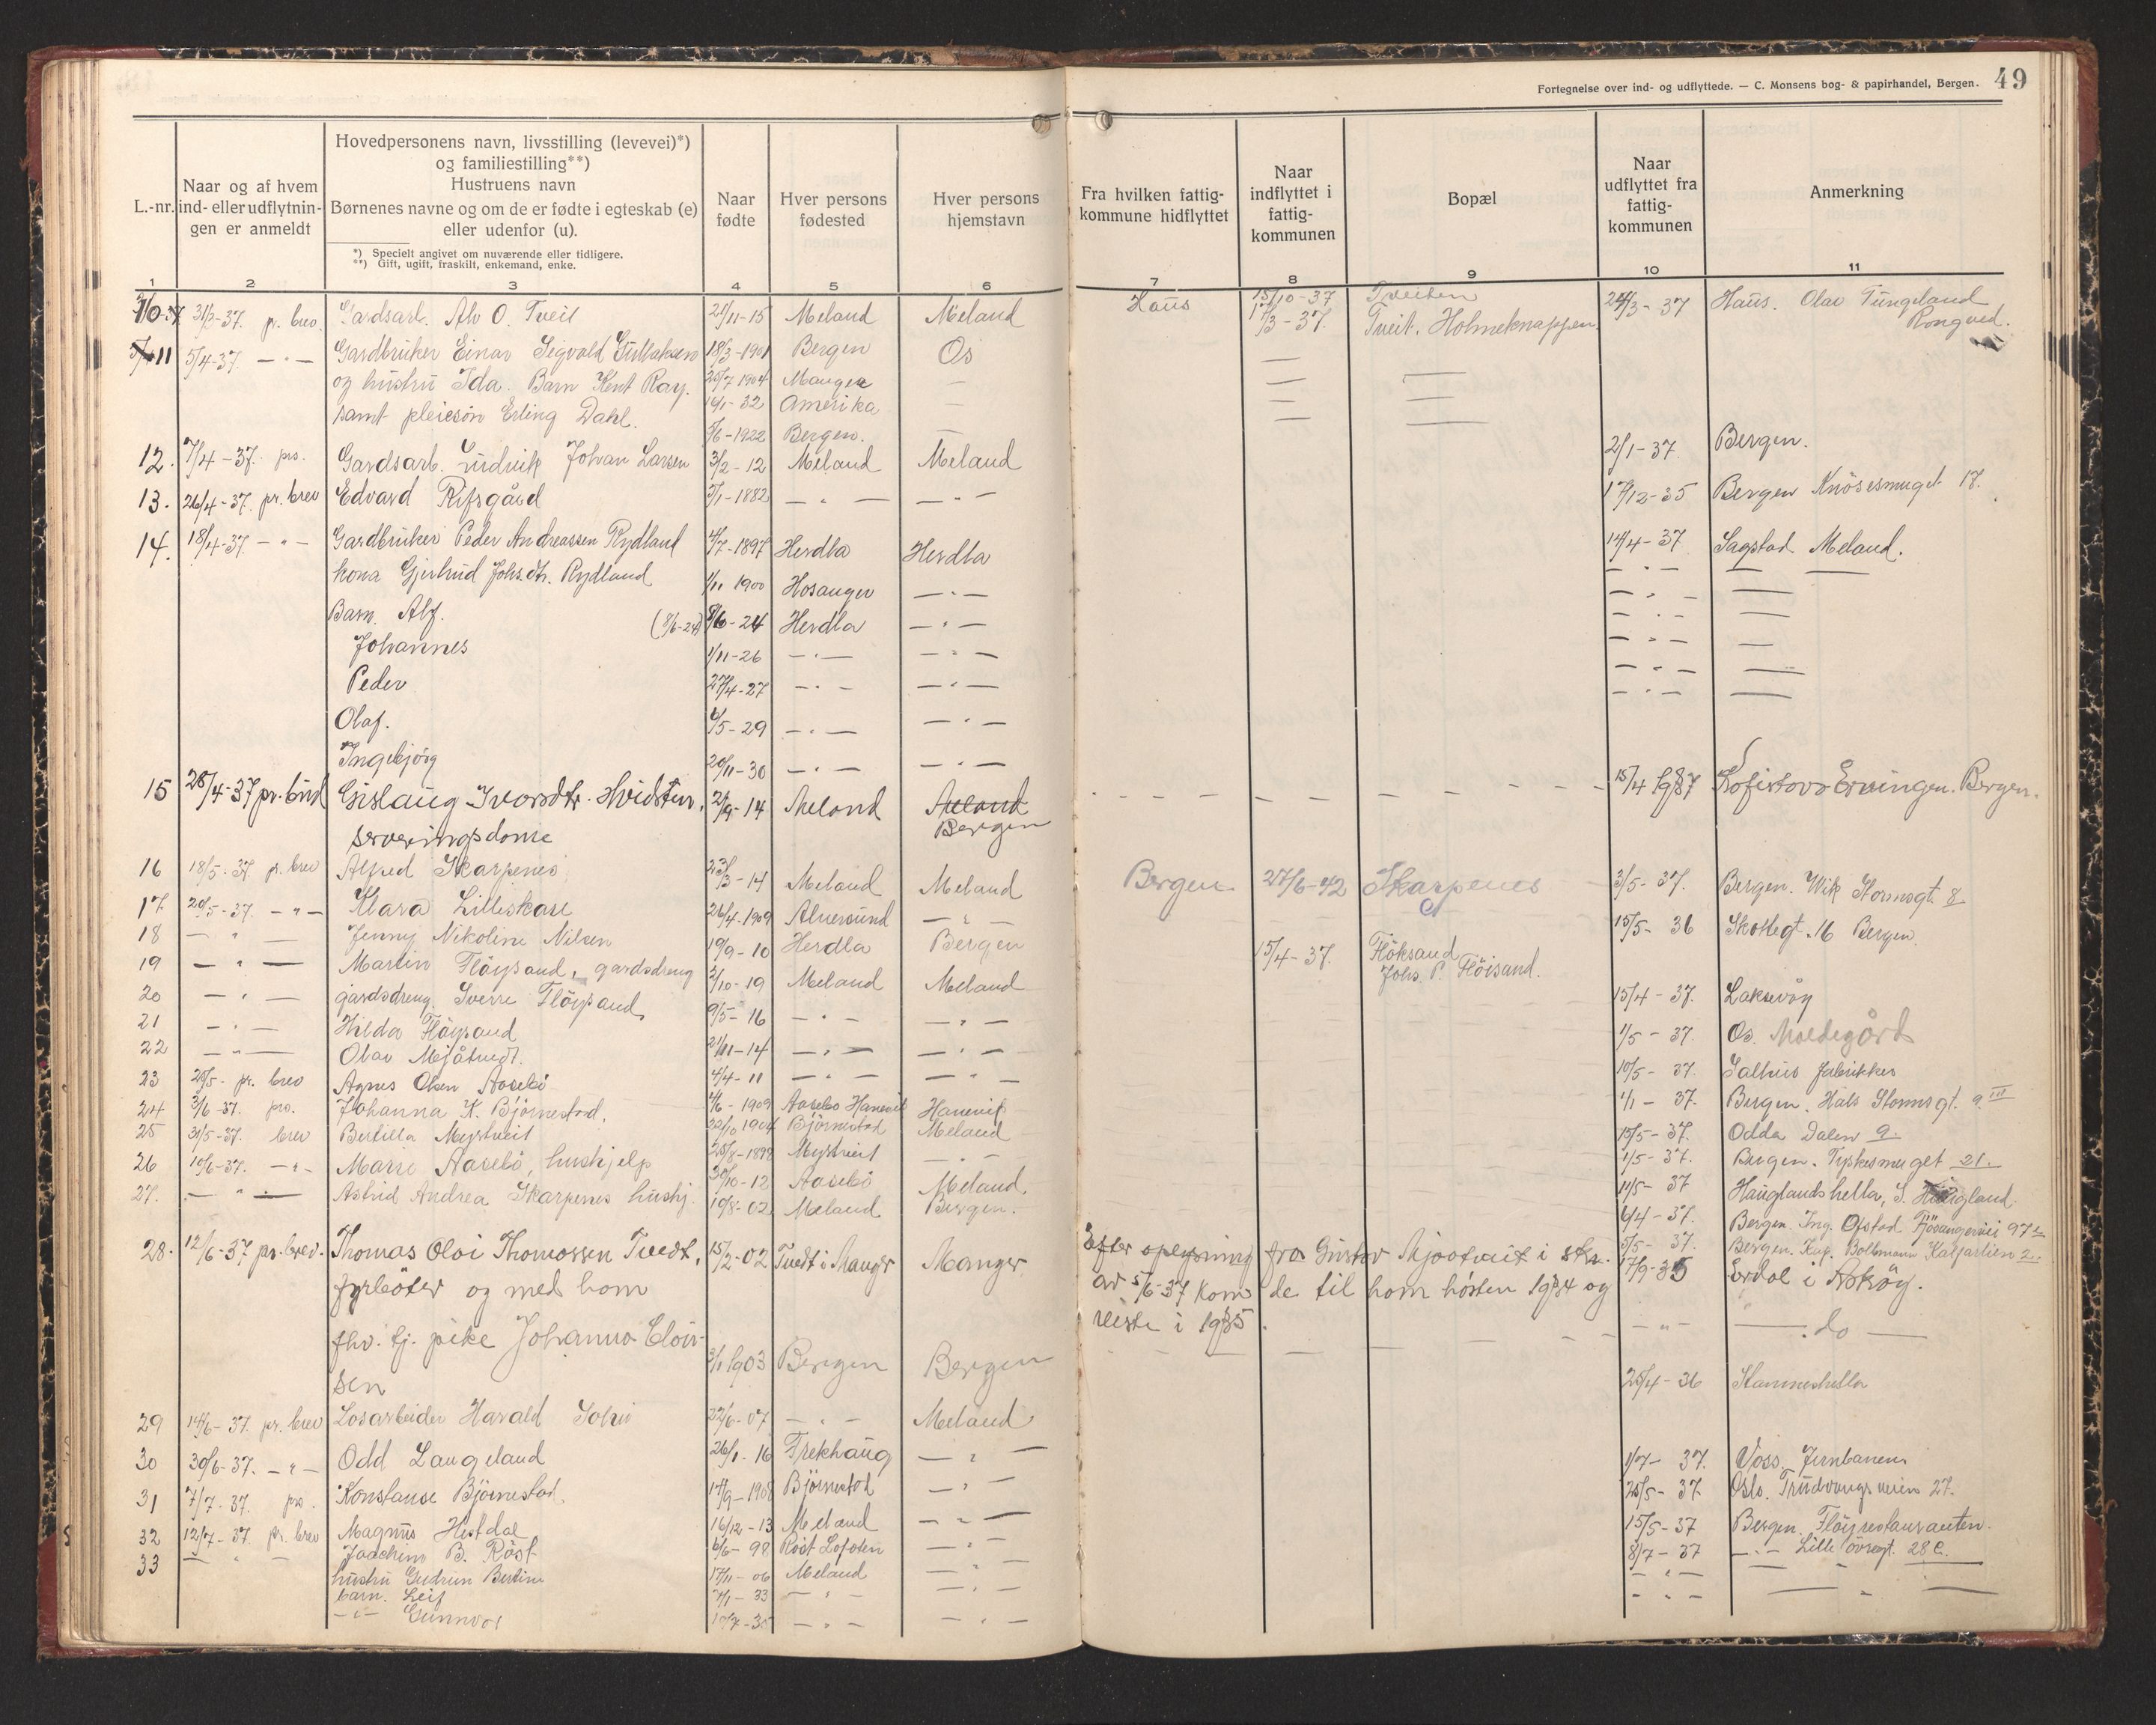 Fortegnelse over ind- og udflyttede. — C. Monsens bog- & papirhandel, Bergen. 49
L.-nr.
Naar og af hvem
ind- eller udflytnin-
gen er anmeldt
Hovedpersonens navn, livsstilling (levevei)*)
og familiestilling**)
Hustruens navn
Børnenes navne og om de er fødte i egteskab (e)
eller udenfor (u).
*) Specielt angivet om nuværende eller tidligere.
**) Gift, ugift, fraskilt, enkemand, enke.
Naar
fødte
Hver persons
fødested
Hver persons
hjemstavn
Fra hvilken fattig-
kommune hidflyttet
Naar
indflyttet i
fattig-
kommunen
Bopæl
Naar
udflyttet fra
fattig-
kommunen
Anmerkning
1 2 3 4 5 6 7 8 9 10 11
10 31/3-37. pr. brev. Gardsarb. Alv O. Tveit 21/11-15 Meland Meland Haus 15/10-37 Tveiten 24/3-37 Haus. Olav Tungeland
17/3-37. Tveit. Holmeknappen. Rongved.
11 5/4-37. — " — Gardbruker Einar Sigvald Gullaksen 18/3-1901 Bergen Os —
og hustru Ida. Barn Kent Ray. 20/7 1904 Manger — — —
samt pleiesön Erling Dahl. 16/1-32 Amerika — — —
5/6-1922 Bergen. — — —
12. 7/4-37. prs. Gardsarb. Ludvik Johan Larsen 3/2-12 Meland Meland 2/1-37. Bergen.
13. 26/4-37. pr. brev Edvard Rifsgård 5/1-1882 — " — — " — 17/12-35 Bergen Knösesmuget 17.
14. 18/4-37. — " — Gardbruker Peder Andreassen Rydland 4/7-1897 Herdla Herdla 14/4-37 Sagstad Meland.
kona Gjertrud Johs.dtr. Rydland 1/11 1900 Hosanger — " — — " — —
Barn. Alf. (8/6-24) 8/6-24 Herdla — " — — " — —
Johannes 1/11-26 — " — — " — — " — —
Peder 27/4-27 — " — — " — — " — —
Olaf. 6/5-29 — " — — " — — " — —
Ingebjörg 20/11-30 — " — — " — — " — —
15 28/4-37 pr. bud Gislaug Ivarsdtr. Hvidsten, 21/9-14 Meland Meland 15/4 1937 Kafistova Ervingen. Bergen.
serveringsdame Bergen
16 18/5-37. pr. brev Alfred Skarpenes 23/3-14 Meland Meland Bergen 27/6-42 Skarpenes 3/5-37. Bergen. Wik Stormsgt. 8
17. 20/5-37. — " — Klara Lilliskare 26/4-1909 Alversund — " — 15/5-36 Skottegt. 16 Bergen.
18 — " — Jenny Nikoline Nilsen 19/9-10 Herdla Bergen 15/4-37. Flöksand
Johs P. Flöisand.
19 — " — Martin Flöysand, gardsdreng 3/10-19 Meland Meland 15/4-37. Laksevåg
20 — " — gardsdreng. Sverre Flöysand 9/5-16 — " — — " — 1/5-37. Os. Moldegård
21 — " — Hilda Flöysand 21/11-14 — " — — " — 10/5-37. Salhus fabrikker
22 — " — Olav Mjåtvedt. 4/4-11 — " — — " — 4/1-37. Bergen. Håk Stormsgt. 9 III
23 20/5- pr. brev Agnes Olsen Aasebö 4/6-1909 Aasebö Hanevik Hanevik 15/5-37. Odda Dalen 9.
24 3/6-37. prs. Johanna K. Björnestad. 22/10 1904 Björnestad Meland 1/5-37. Bergen. Tyskesmuget 21.
25 31/5-37. brev Bertilla Mystveit 25/8-1898 Mystveit — " — 11/5-37 Hauglandshella, S. Haugland.
26 10/6-37. — " — Marie Aasebö, hushjelp 30/10-12 Aasebö Meland. 6/4-37. Bergen. Ing. Ofstad. Fjösangervei 97
27. — " — Astrid Andrea Skarpenes hushj. 19/8-02 Meland Bergen. 5/5-37. Bergen. Kap. Boltmann Kalfarlien 2.
28. 12/6-37 pr. brev. Thomas Olai Thomassen Tvedt, 15/2-02 Tvedt i Manger Manger. Efter oplysning fra Gustav Mjaatveit i skr. 17/9-35 Erdal i Askøy.
fyrböter og med ham av 5/6-37 kom de til ham høsten 1934 og
reiste i 1935. — " — — do —
fhv. tj. pike Johanna Eloi-
sen 3/1 1903 Bergen Bergen
29 14/6-37. pr. brev Losarbeider Harald Solvi 22/6-07 — " — Meland 25/4-36 Stanneshella
30 30/6-37. — " — Odd Langeland 26/1-16 Frekhaug — " — 1/7-37. Voss. Jernbanen
31 7/7-37. prs. Konstanse Björnestad. 14/9-1908 Björnestad — " — 25/5-37. Oslo. Trudvangsveien 27.
32 12/7-37. pr. brev Magnus Hestdal 16/12-13 Meland — " — 15/5-37 Bergen. Flöyrestauranten.
33 — " — Joachim B. Röst 6/6-98 Röst Lofoten — " — 8/7-37 — " — Lille övregt. 28 c.
hustru Gudrun Bertine 17/11-06 Meland — " — — " —
barn. Leif 7/1-33 — " — — " — — " —
— " — Gunnvor 10/7-35 — " — — " —